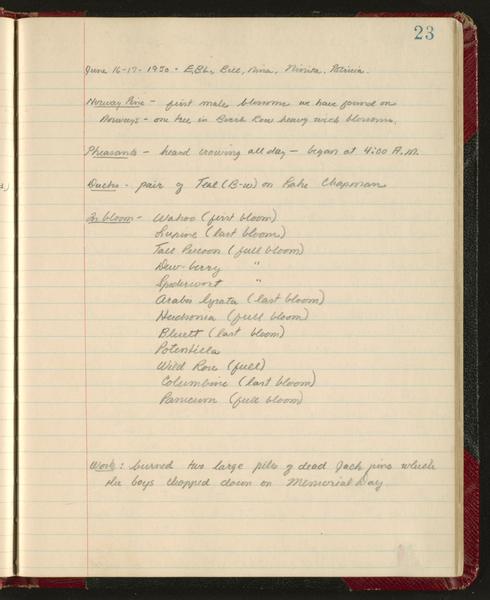 23
June 16-17-1950 - EBL, Bill, Nina, Ninita, Patricia.
Norway Pine - first male blossoms we have found on
Norways - one tree in Birch Row heavy with blossoms.
Pheasants - heard crowing all day - began at 4:00 A.M.
Ducks - pair of Teal (B-w) on Lake Chapman
In bloom - Wahoo (first bloom)
Lupine (last bloom)
Tall Puccoon (full bloom)
Dew-berry "
Spiderwort "
Arabis lyrata (last bloom)
Hudsonia (full bloom)
Bluett (last bloom)
Potentilla
Wild Rose (full)
Columbine (last bloom)
Panicum (full bloom)
Work: burned two large piles of dead Jack pine which
the boys chopped down on Memorial Day